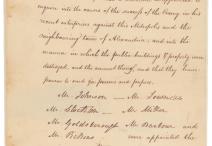 inquire into the causes of the success of the Enemy in his
recent enterprises against this Metropolis and the
neighbouring town of Alexandria, and into the
manner in which the public buildings & property were
destroyed, and the amount thereof, and that they have
power to send for persons and papers.
Mr Johnson — Mr Lowndes
Mr Stockton — Mr Miller
Mr Goldsborough Mr Barbour and
Mr Pickens were appointed the